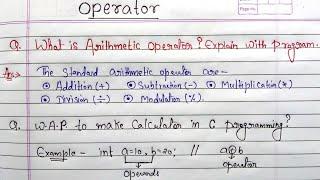 Operator
Page No.
Q. What is Arithmetic operator? Explain with program.
Ans→ The Standard arithmetic operator are-
• Addition (+) • Subtraction (-) • Multiplication (*)
• Division (÷) • Modulation (%).
Q. W.A.P to make Calculator in C programming?
Example - int a=10, b=20; // a+b
operands operator